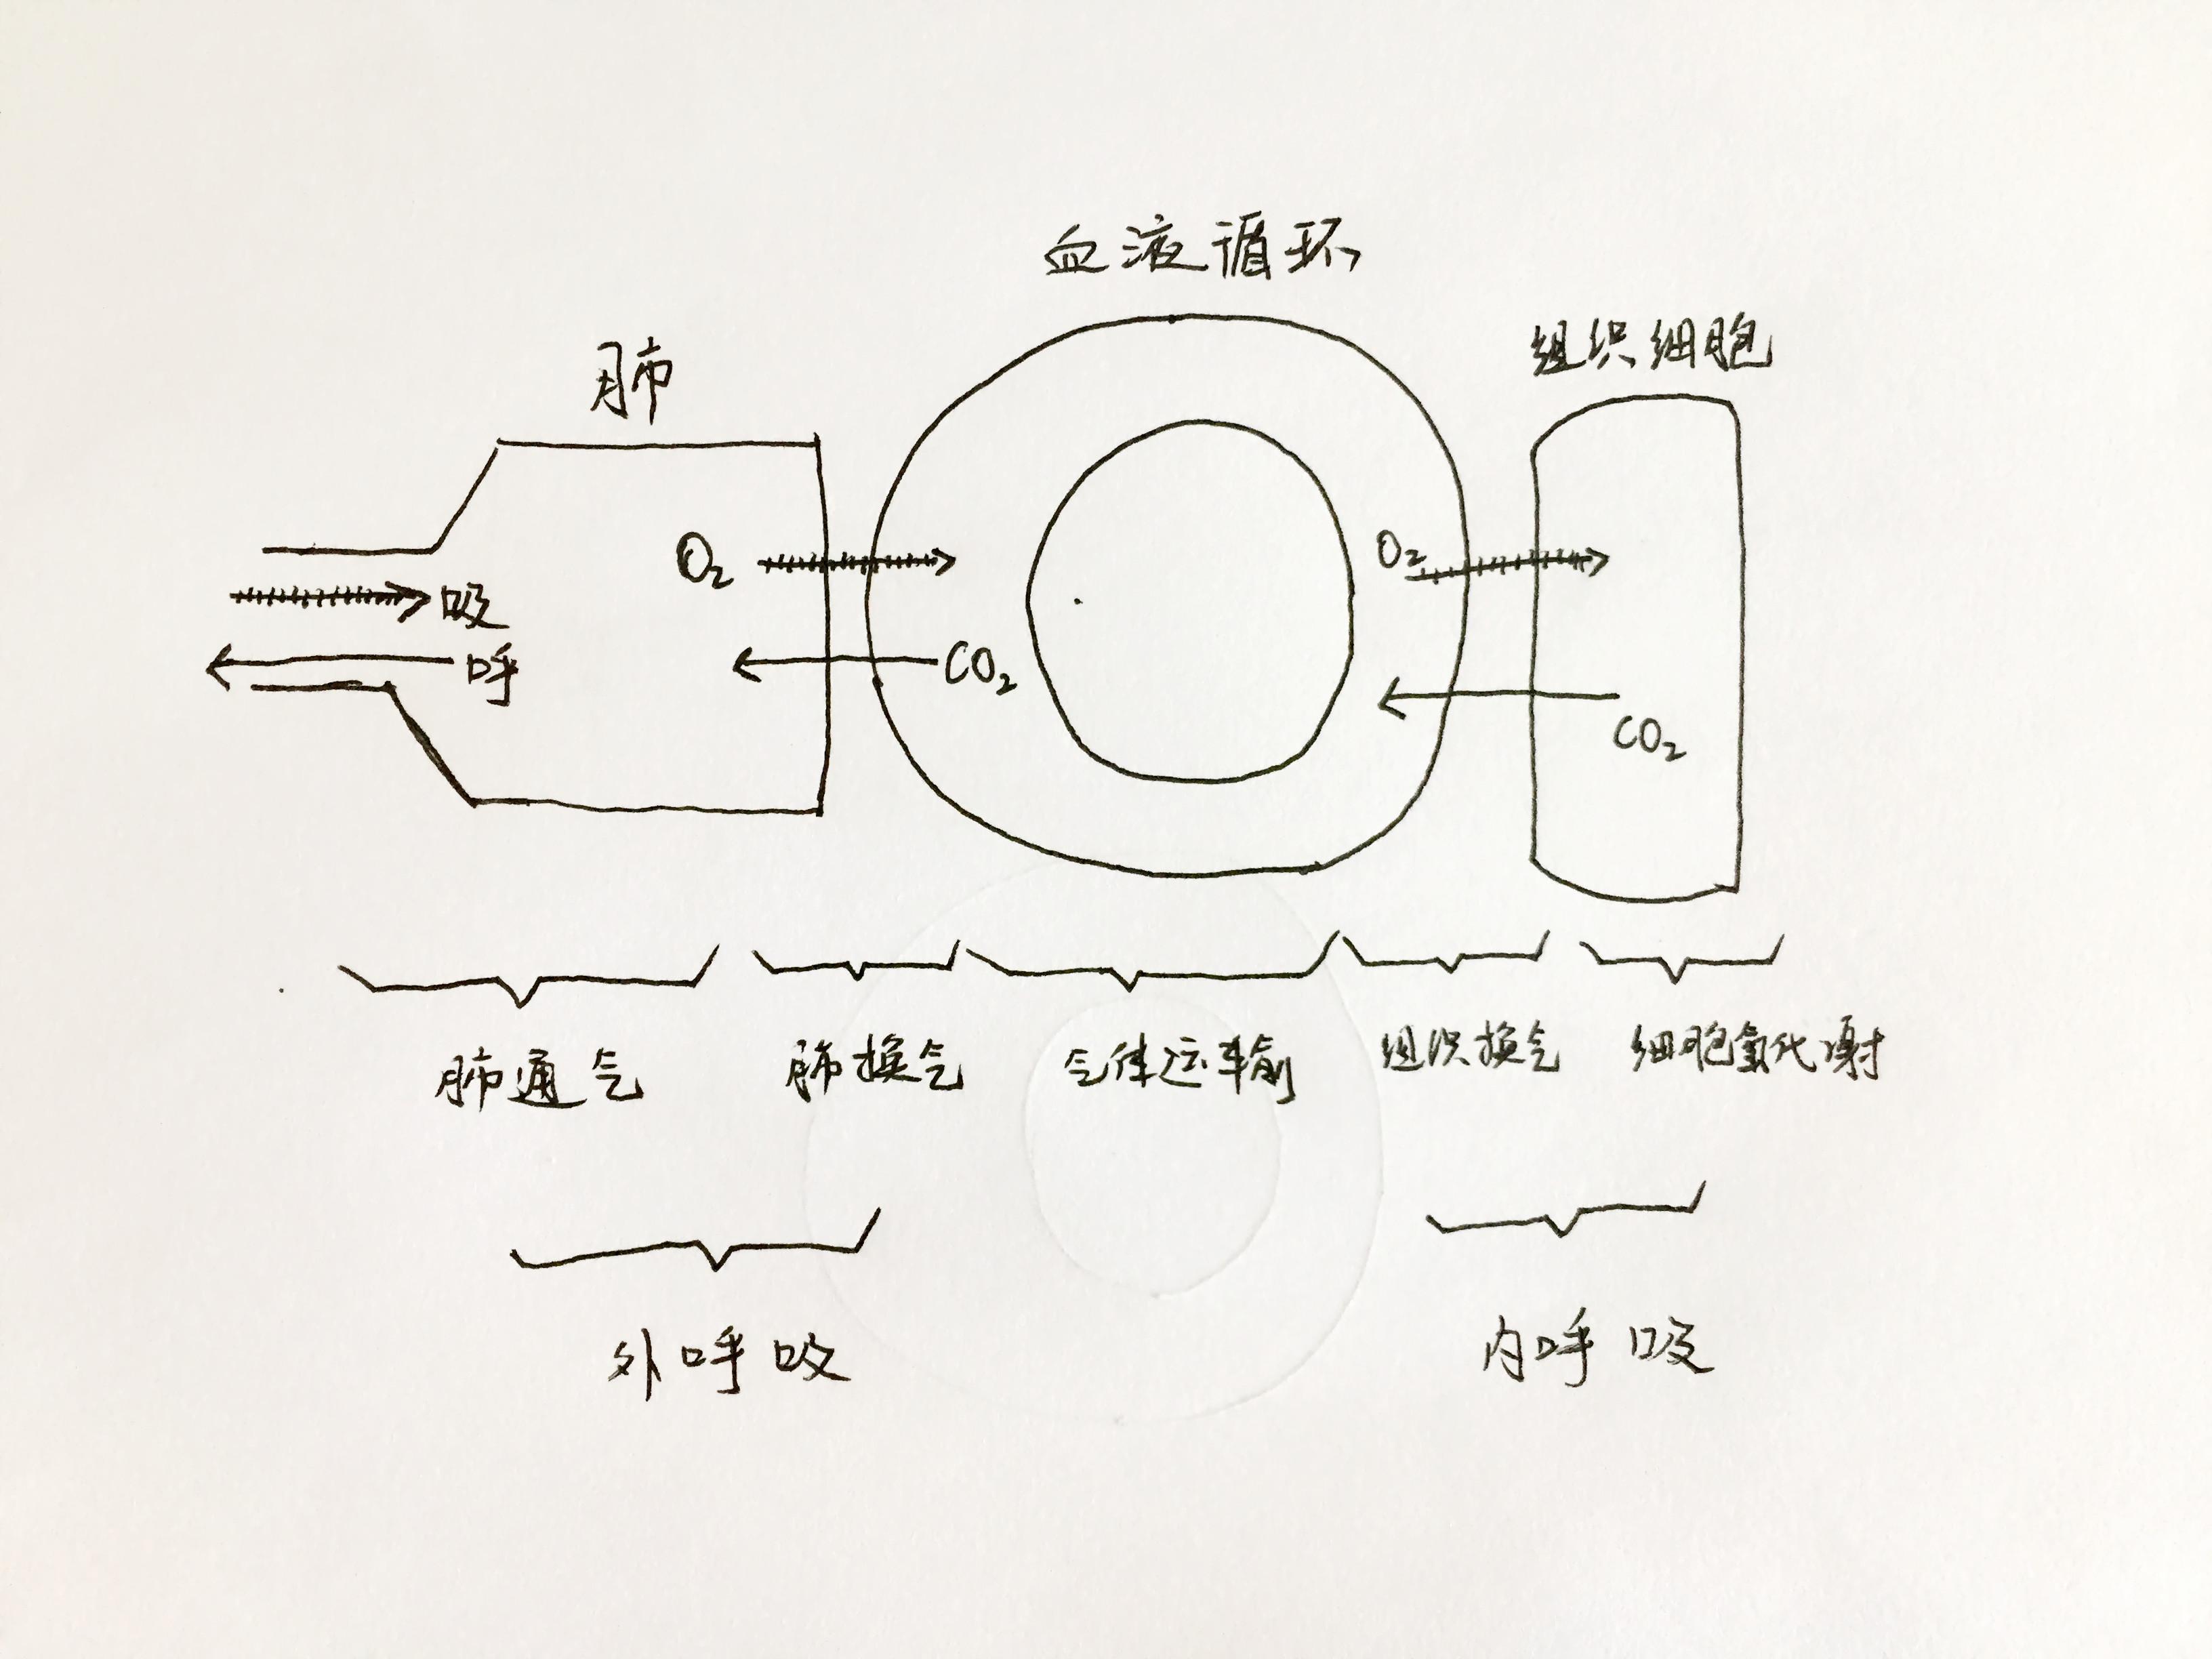 血液循环
组织细胞
肺
O₂
O₂
吸
呼
CO₂
CO₂
肺通气 肺换气 气体运输 组织换气 细胞氧代谢
外呼吸 内呼吸